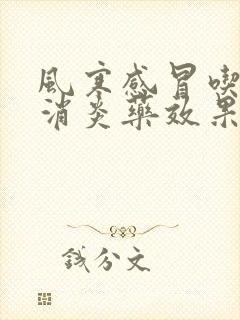 風寒感冒喫
消炎藥效果
錢分文